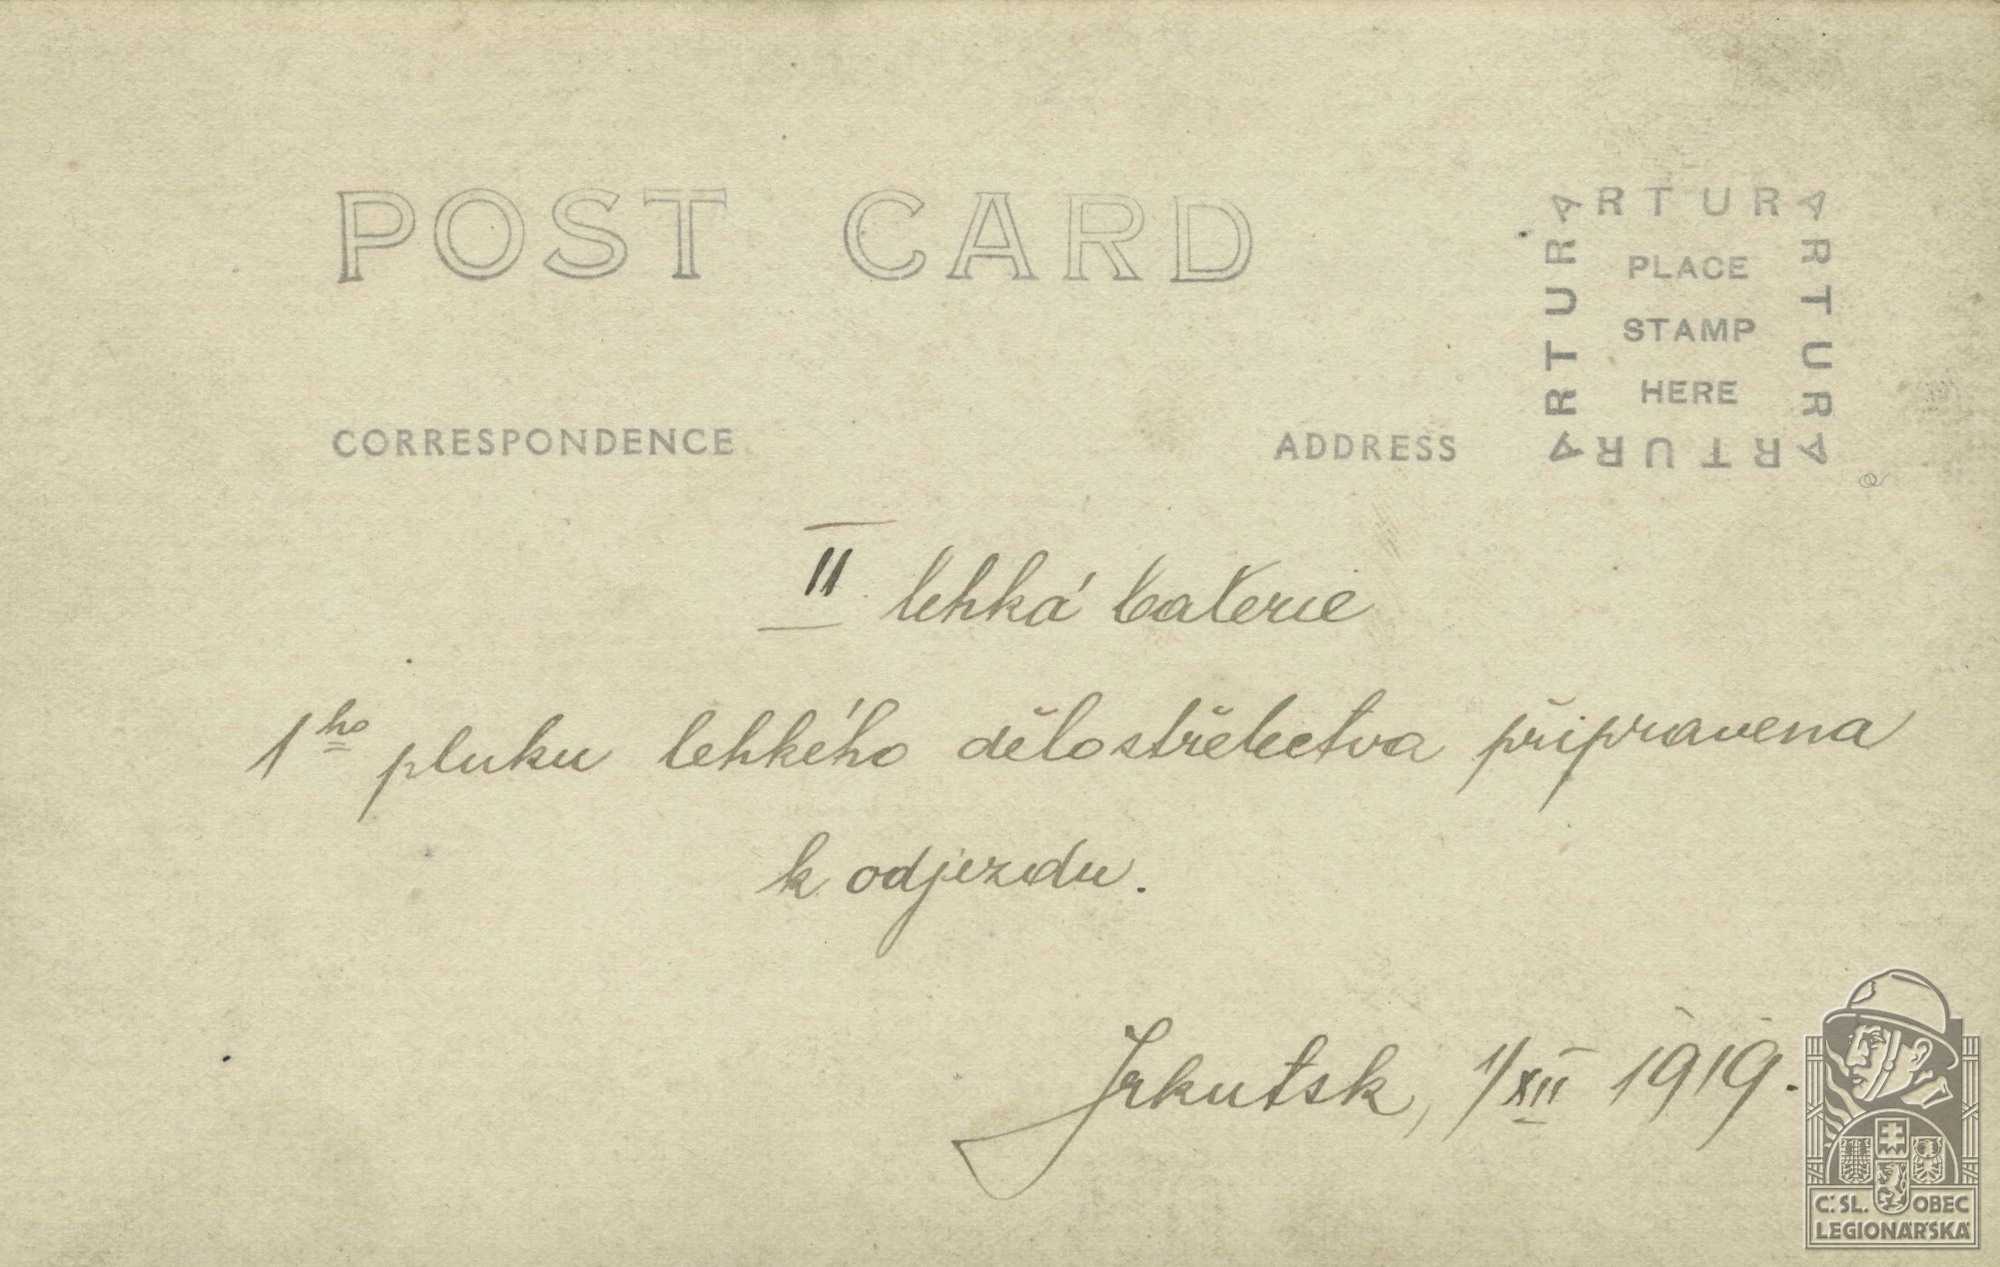 POST CARD
ARTURA
ARTURA
ARTURA
ARTURA
PLACE
STAMP
HERE
CORRESPONDENCE
ADDRESS
II lehká baterie
1ho pluku lehkého dělostřelectva připravena
k odjezdu.
Irkutsk, 1/XII 1919.
Č.SL. OBEC
LEGIONÁŘSKÁ